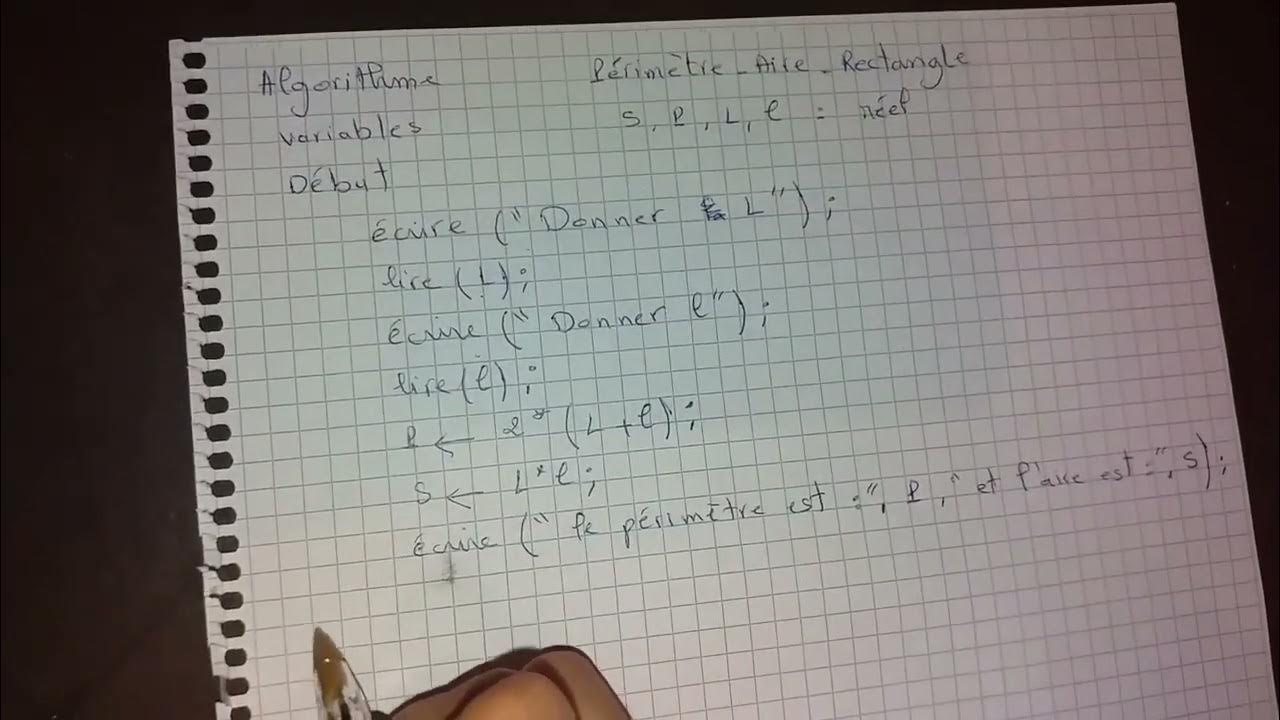 Algorithme Périmètre_Aire_Rectangle
variables S, P, L, l : réel
Début
écrire ("Donner L");
lire (L);
écrire ("Donner l");
lire (l);
P ← 2* (L + l);
S ← L* l;
écrire ("le périmètre est :", P, " et l'aire est :", S);